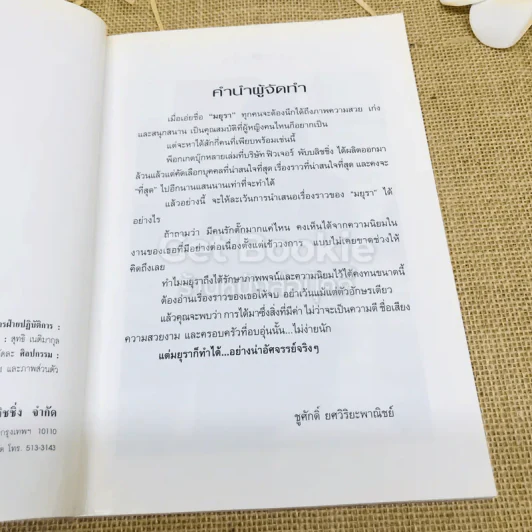 คำนำผู้จัดทำ
เมื่อเอ่ยชื่อ "มยุรา" ทุกคนจะต้องนึกได้ถึงภาพความสวย เก่ง
และสนุกสนาน เป็นคุณสมบัติที่ผู้หญิงคนไหนก็อยากเป็น
แต่จะหาได้สักกี่คนที่เพียบพร้อมเช่นนี้
พ็อกเกตบุ๊กหลายเล่มที่บริษัท ฟิวเจอร์ พับบลิชชิ่ง ได้ผลิตออกมา
ล้วนแล้วแต่คัดเลือกบุคคลที่น่าสนใจที่สุด เรื่องราวที่น่าสนใจที่สุด และคงจะ
"ที่สุด" ไปอีกนานแสนนานเท่าที่จะทำได้
แล้วอย่างนี้ จะให้ละเว้นการนำเสนอเรื่องราวของ "มยุรา" ได้
อย่างไร
ถ้าถามว่า มีคนรักตั๊กมากแค่ไหน คงเห็นได้จากความนิยมใน
งานของเธอที่มีอย่างต่อเนื่องตั้งแต่เข้าวงการ แบบไม่เคยขาดช่วงให้
คิดถึงเลย
ทำไมมยุราถึงได้รักษาภาพพจน์และความนิยมไว้ได้คงทนขนาดนี้
ต้องอ่านเรื่องราวของเธอให้จบ อย่าเว้นแม้แต่ตัวอักษรเดียว
แล้วคุณจะพบว่า การได้มาซึ่งสิ่งที่มีค่า ไม่ว่าจะเป็นความดี ชื่อเสียง
ความสวยงาม และครอบครัวที่อบอุ่นนั้น...ไม่ง่ายนัก
แต่มยุราก็ทำได้...อย่างน่าอัศจรรย์จริงๆ
ชูศักดิ์ ยศวิริยะพาณิชย์
Get Bookie
ารฝ่ายปฏิบัติการ :
: สุทธิ เนติมากุล
ตละ ศิลปกรรม :
ร และภาพส่วนตัว
ิชชิ่ง จำกัด
กรุงเทพฯ 10110
ด โทร. 513-3143